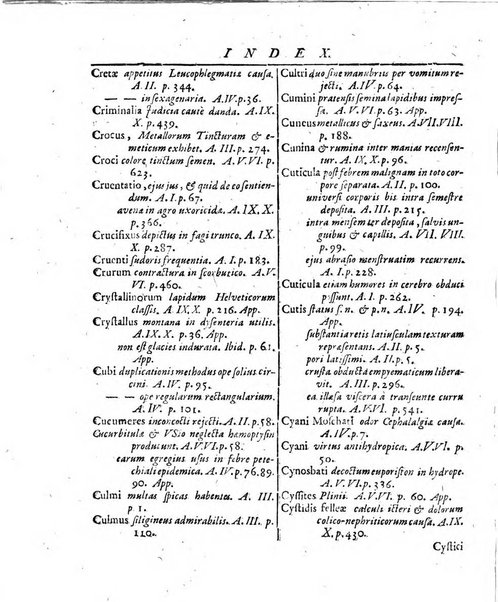 INDEX.
Cretæ appetitus Leucophlegmatiæ causa.
A. II. p. 344.
— — in sexagenaria. A. IV. p. 36.
Criminalia Judicia cautè danda. A. IX.
X. p. 439.
Crocus, Metallorum Tincturam & e-
meticum exhibet. A. III. p. 274.
Croci colore tinctum semen. A. V. VI. p.
623.
Cruentatio, ejus jus, & quid de ea sentien-
dum. A. I. p. 67.
avenæ in agro uxoricidæ. A. IX. X.
p. 366.
Crucifixus depictus in fagi trunco. A. IX.
X. p. 287.
Cruenti sudoris frequentia. A. I. p. 183.
Crurum contractura in scorbutico. A. V.
VI. p. 460.
Crystallinorum lapidum Helveticorum
classis. A. IX. X. p. 216. App.
Crystallus montana in dysenteria utilis.
A. IX. X. p. 36. App.
non est glacies indurata. Ibid. p. 61.
App.
Cubi duplicationis methodus ope solius cir-
cini. A. IV. p. 95.
— — ope regularum rectangularium.
A. IV. p. 101.
Cucumeres inconcocti rejecti. A. II. p. 58.
Cucurbitulæ & VSio neglecta hæmoptysin
producunt. A. V. VI. p. 58.
earum egregius usus in febre pete-
chiali epidemica. A. IV. p. 76. 89.
90. App.
Culmi multas spicas habentes. A. III.
p. 1.
Culmus siligineus admirabilis. A. III. p.
110.
Cultri duo sine manubriis per vomitum re-
jecti. A. IV. p. 64.
Cumini præstantis semina lapidibus impres-
sa. A. V. VI. p. 63. App.
Cuneus metallicus & saxeus. A. VII. VIII.
p. 188.
Cunina & rumina inter manias recensen-
tur. A. IX. X. p. 96.
Cuticula post febrem malignam in toto cor-
pore separata. A. II. p. 100.
universi corporis bis intra semestre
deposita. A. III. p. 215.
intra mensem ter deposita, salvis un-
guibus & capillis. A. VII. VIII.
p. 99.
ejus abrasio menstruatim recurrens.
A. I. p. 228.
Cuticula etiam humores in cerebro obduci
possunt. A. I. p. 262.
Cutis status s. n. & p. n. A. IV. p. 194.
App.
substantia retis latiusculam texturam
repræsentans. A. II. p. 5.
pori latissimi. A. II. p. 5.
crusta obducta empyematicum libera-
vit. A. III. p. 296.
ea illæsa viscera à transeunte curru
rupta. A. V. VI. p. 541.
Cyani Moschati odor Cephalalgiæ causa.
A. IV. p. 7.
Cyani virtus antihydropica. A. V. VI. p.
50.
Cynosbati decoctum euporiston in hydrope.
A. V. VI. p. 336.
Cyssites Plinii. A. V. VI. p. 60. App.
Cystidis felleæ calculi icteri & dolorum
colico-nephriticorum causa. A. IX.
X. p. 430.
Cystici